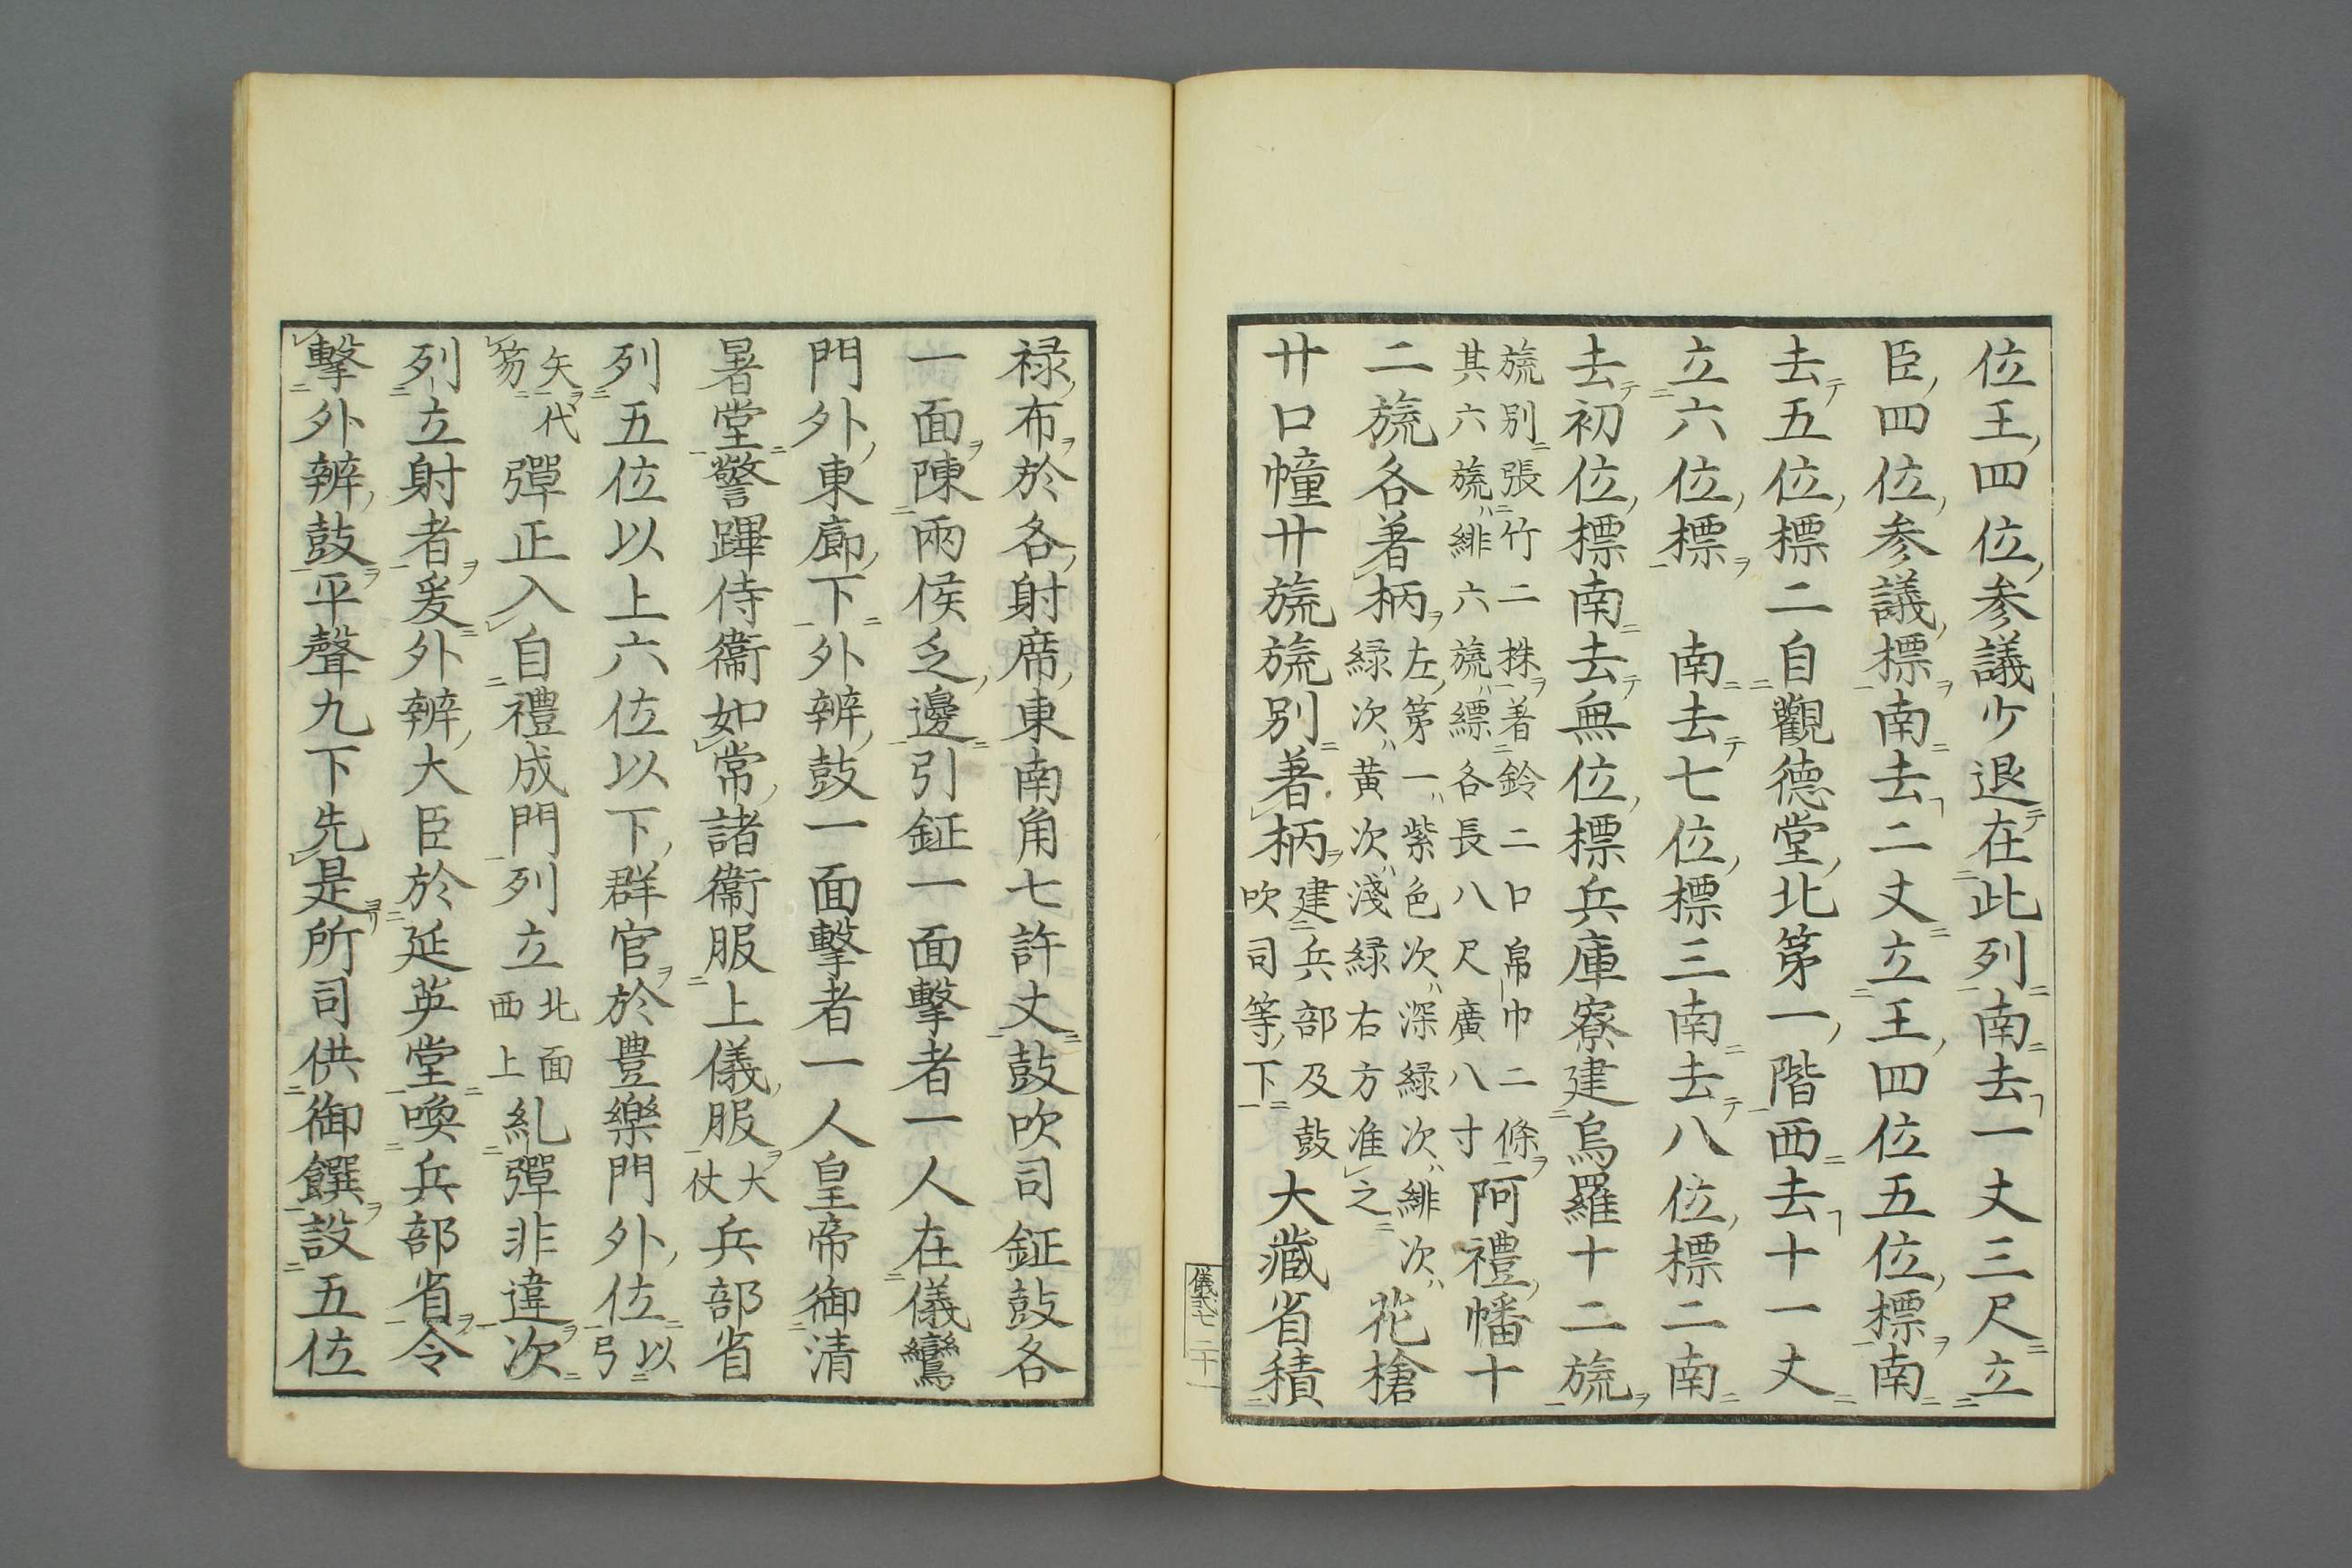 位王四位参議少退在此列南去一丈三尺立
臣四位参議標南去二丈立王四位五位標南
去五位標二自觀德堂北第一階西去十一丈
立六位標南去七位標三南去八位標二南
去初位標南去無位標兵庫寮建烏羅十二旒
旒別張竹二株著鈴二口帛巾二條
其六旒緋六旒縹各長八尺廣八寸
阿禮幡十
二旒各著柄
左第一紫色次深緑次緋次
緑次黄次淺緑右方准之
花槍
廿口幢廿旒旒別著柄
建兵部及鼓
吹司等下
大藏省積
儀式七 二十
禄布於各射席東南角七許丈鼓吹司鉦鼓各
一面陳兩侯乏邊引鉦一面擊者一人在儀鸞
門外東廊下外辨鼓一面擊者一人皇帝御清
暑堂警蹕侍衞如常諸衞服上儀服
大
仗
兵部省
列五位以上六位以下群官於豊樂門外位
以
弓
矢代
笏
彈正入自禮成門列立
北面
西上
糺彈非違次
列立射者爰外辨大臣於延英堂喚兵部省令
擊外辨鼓平聲九下先是所司供御饌設五位